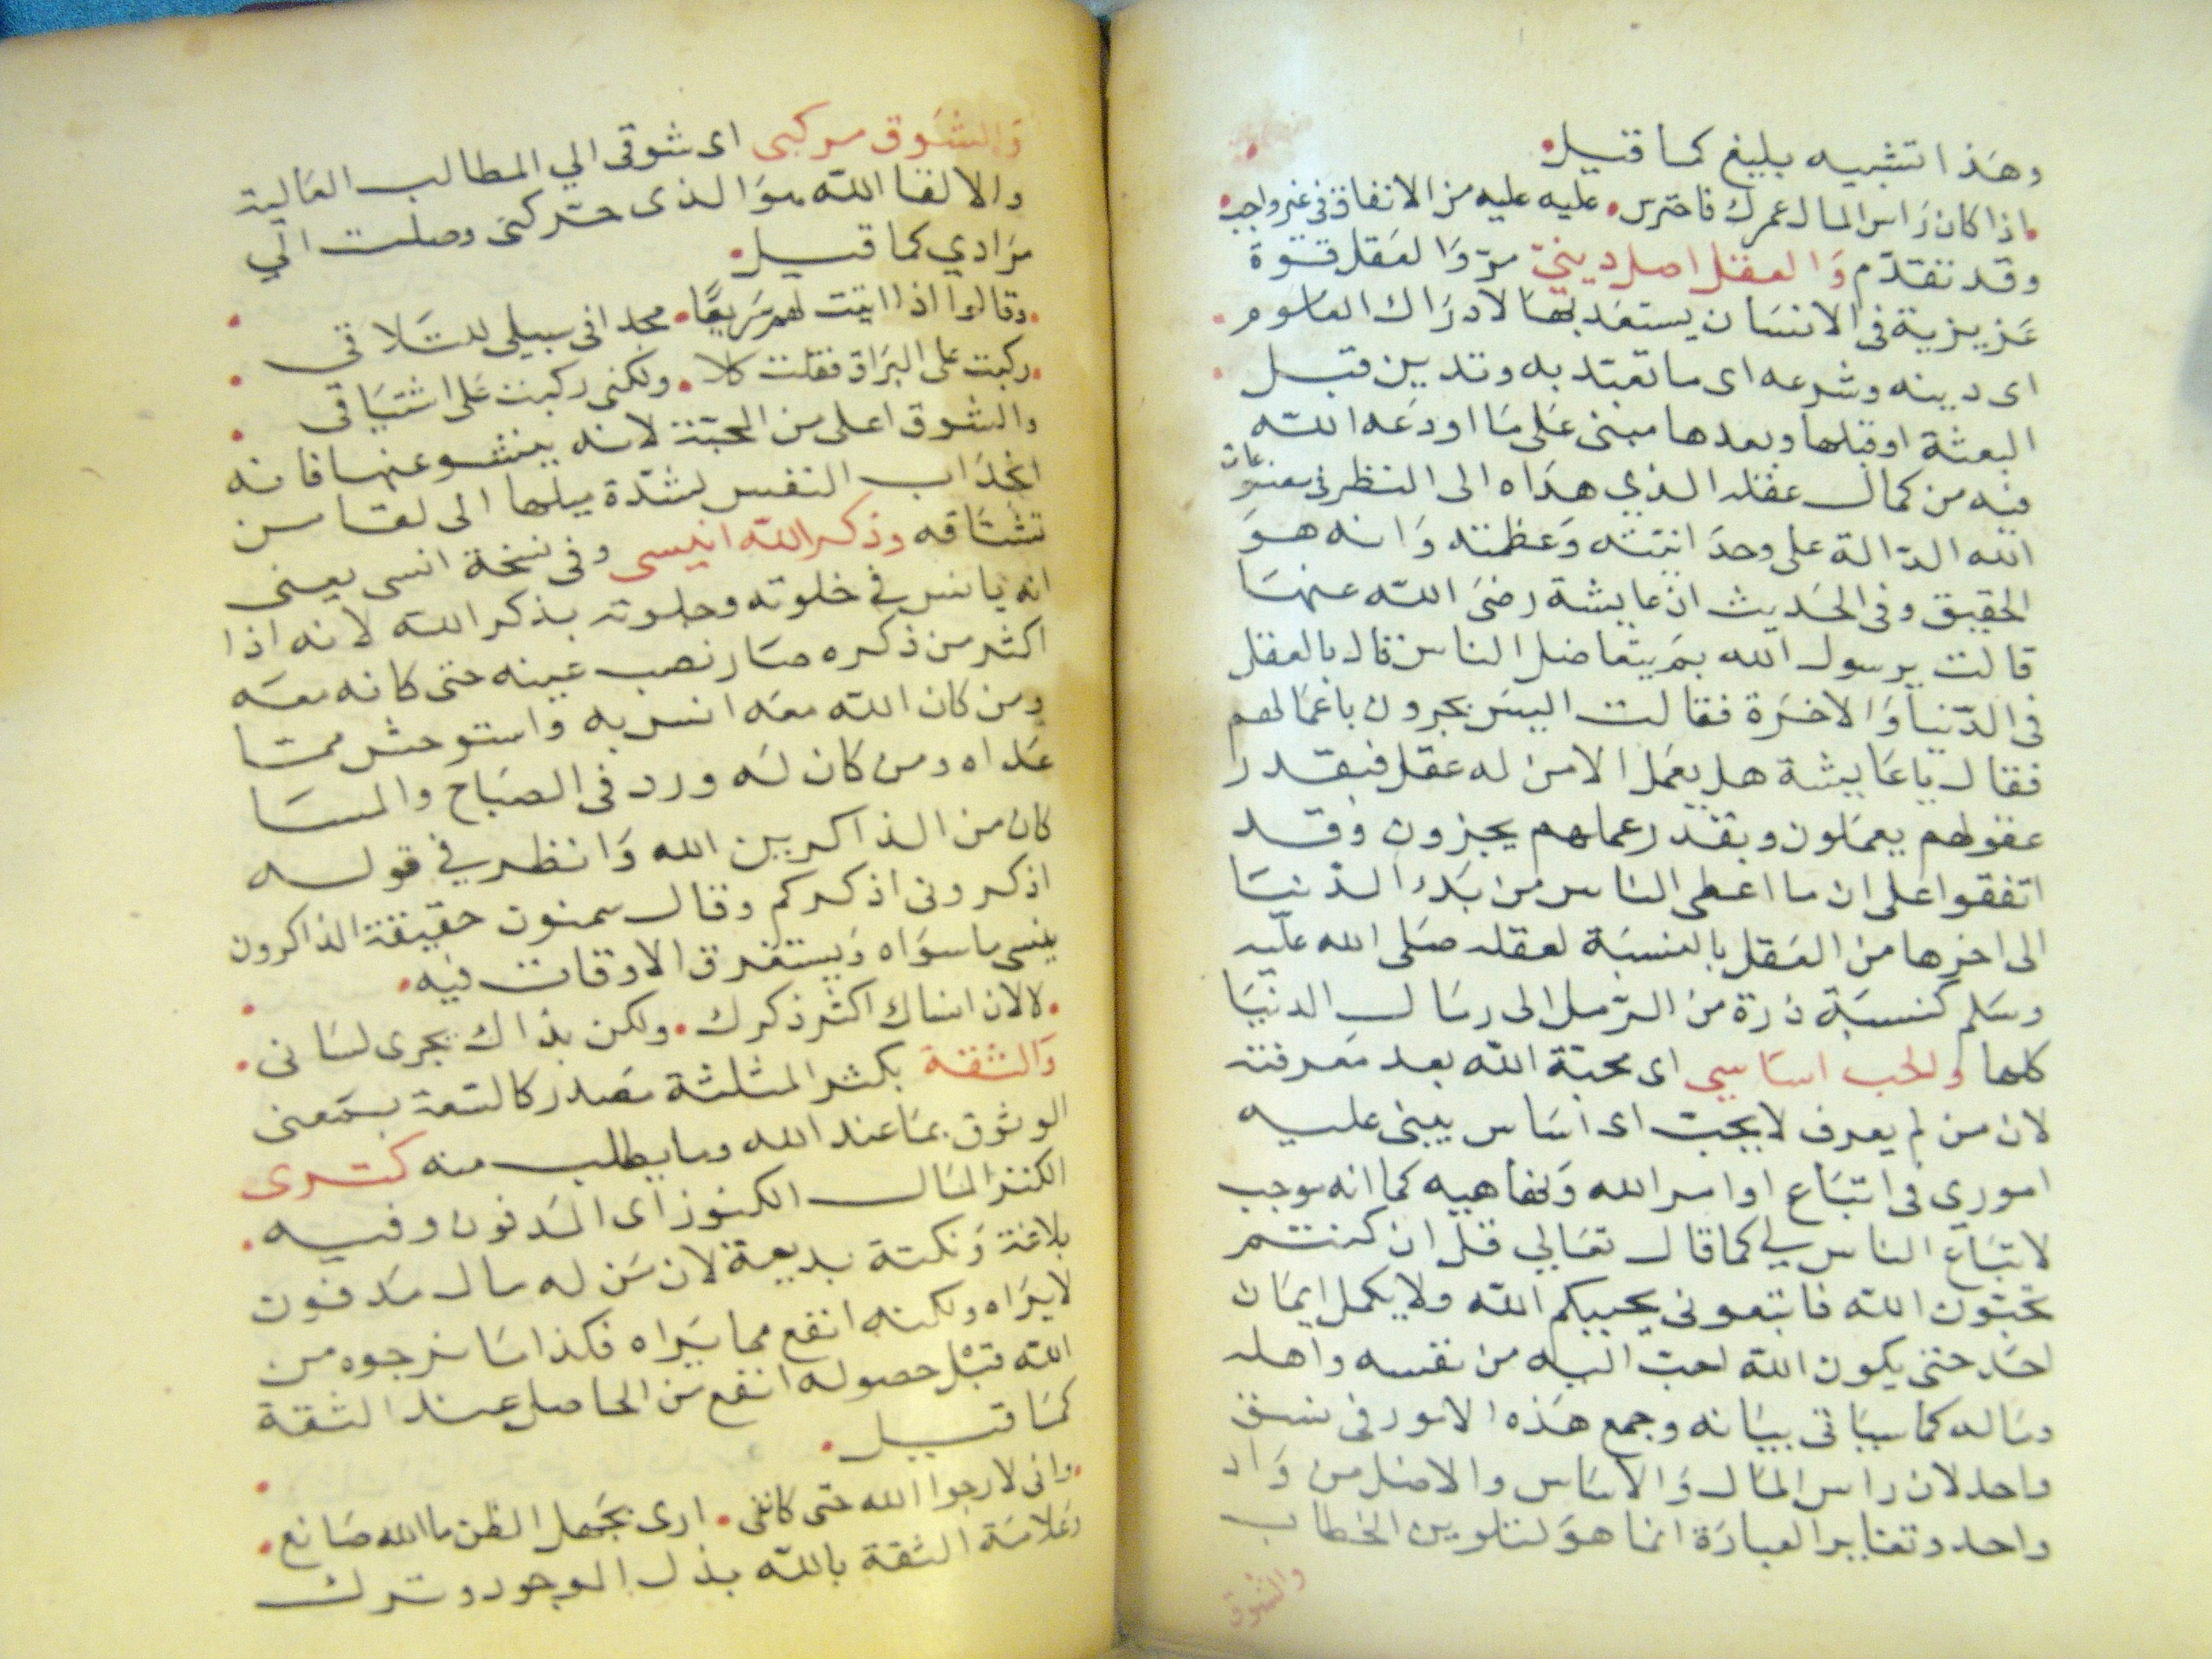 وهذا تشبيه بليغ كما قيل
اذا كان راس المال عمرك فاحترس عليه عليه من الانفاق في غير واجب
وقد تقدم والعقل اصل ديني مر والعقل قوة
غريزية في الانسان يستعد بها لادراك العلوم
اى دينه وشرعه اى ما تعبد به وتدين قبل
البعثة او قبلها وبعدها مبنى على ما اودعه الله
فيه من كمال عقله الذي هداه الى النظر في مصنوعات
الله الدالة على وحدانيته وعظمته وانه هو
الحقيق وفى الحديث ان عايشة رضى الله عنها
قالت يرسول الله بم يتفاضل الناس قال بالعقل
فى الدنيا والاخرة فقالت اليس يجزون باعمالهم
فقال يا عايشة هل يعمل الا من له عقل فبقدر
عقولهم يعملون وبقدر عملهم يجزون وقد
اتفقوا على ان ما اعطى الناس من بدء الدنيا
الى اخرها من العقل بالنسبة لعقله صلى الله عليه
وسلم كنسبة ذرة من الرمل الى رمال الدنيا
كلها والحب اساسي اى محبة الله بعد معرفته
لان من لم يعرف لا يحب اى اساس يبنى عليه
اموري فى اتباع اوامر الله ونواهيه كما انه موجب
لاتباع الناس لي كما قال تعالي قل ان كنتم
تحبون الله فاتبعونى يحببكم الله ولا يكمل ايمان
احد حتى يكون الله احب اليه من نفسه واهله
وماله كما سياتى بيانه وجمع هذه الامور فى نسق
واحد لان راس المال والاساس والاصل من واد
واحد وتغاير العبارة انما هو لتلوين الخطاب
والشوق
والشوق مركبى اى شوقى الي المطالب العالية
والالقا الله هو الذى حركنى وصلت الي
مرادي كما قيل
وقالوا اذا اتيت لهم سريعا مجدا فى سبيلى للتلاقى
ركبت على البراق فقلت كلا ولكنى ركبت على اشتياقى
والشوق اعلى من المحبة لانه ينشو عنها فانه
انجذاب النفس لشدة ميلها الى لقا من
تشتاقه وذكر الله انيسى وفى نسخة انسى يعنى
انه يانس في خلوته وجلوته بذكر الله لانه اذا
اكثر من ذكره صار نصب عينه حتى كانه معه
ومن كان الله معه انس به واستوحش مما
عداه ومن كان له ورد فى الصباح والمسا
كان من الذاكرين الله وانظر في قوله
اذكرونى اذكركم وقال سمنون حقيقة الذاكرون
ينسى ما سواه ويستغرق الاوقات فيه
لا لان انساك اكثر ذكرك ولكن بذاك يجرى لسانى
والثقة بكثر المثلثة مصدر كالسعة بمعنى
الوثوق بما عند الله وما يطلب منه كنزى
الكنز المال الكنوز اى المدفون وفيه
بلاغة ونكتة بديعة لان من له مال مدفون
لا يراه ولكنه انفع مما يراه فكذا ما نرجوه من
الله قبل حصوله انفع من الحاصل عند الثقة
كما قيل
وانى لارجوا الله حتى كاننى ارى بجميل الظن ما الله صانع
وعلامة الثقة بالله بذل الموجود وترك